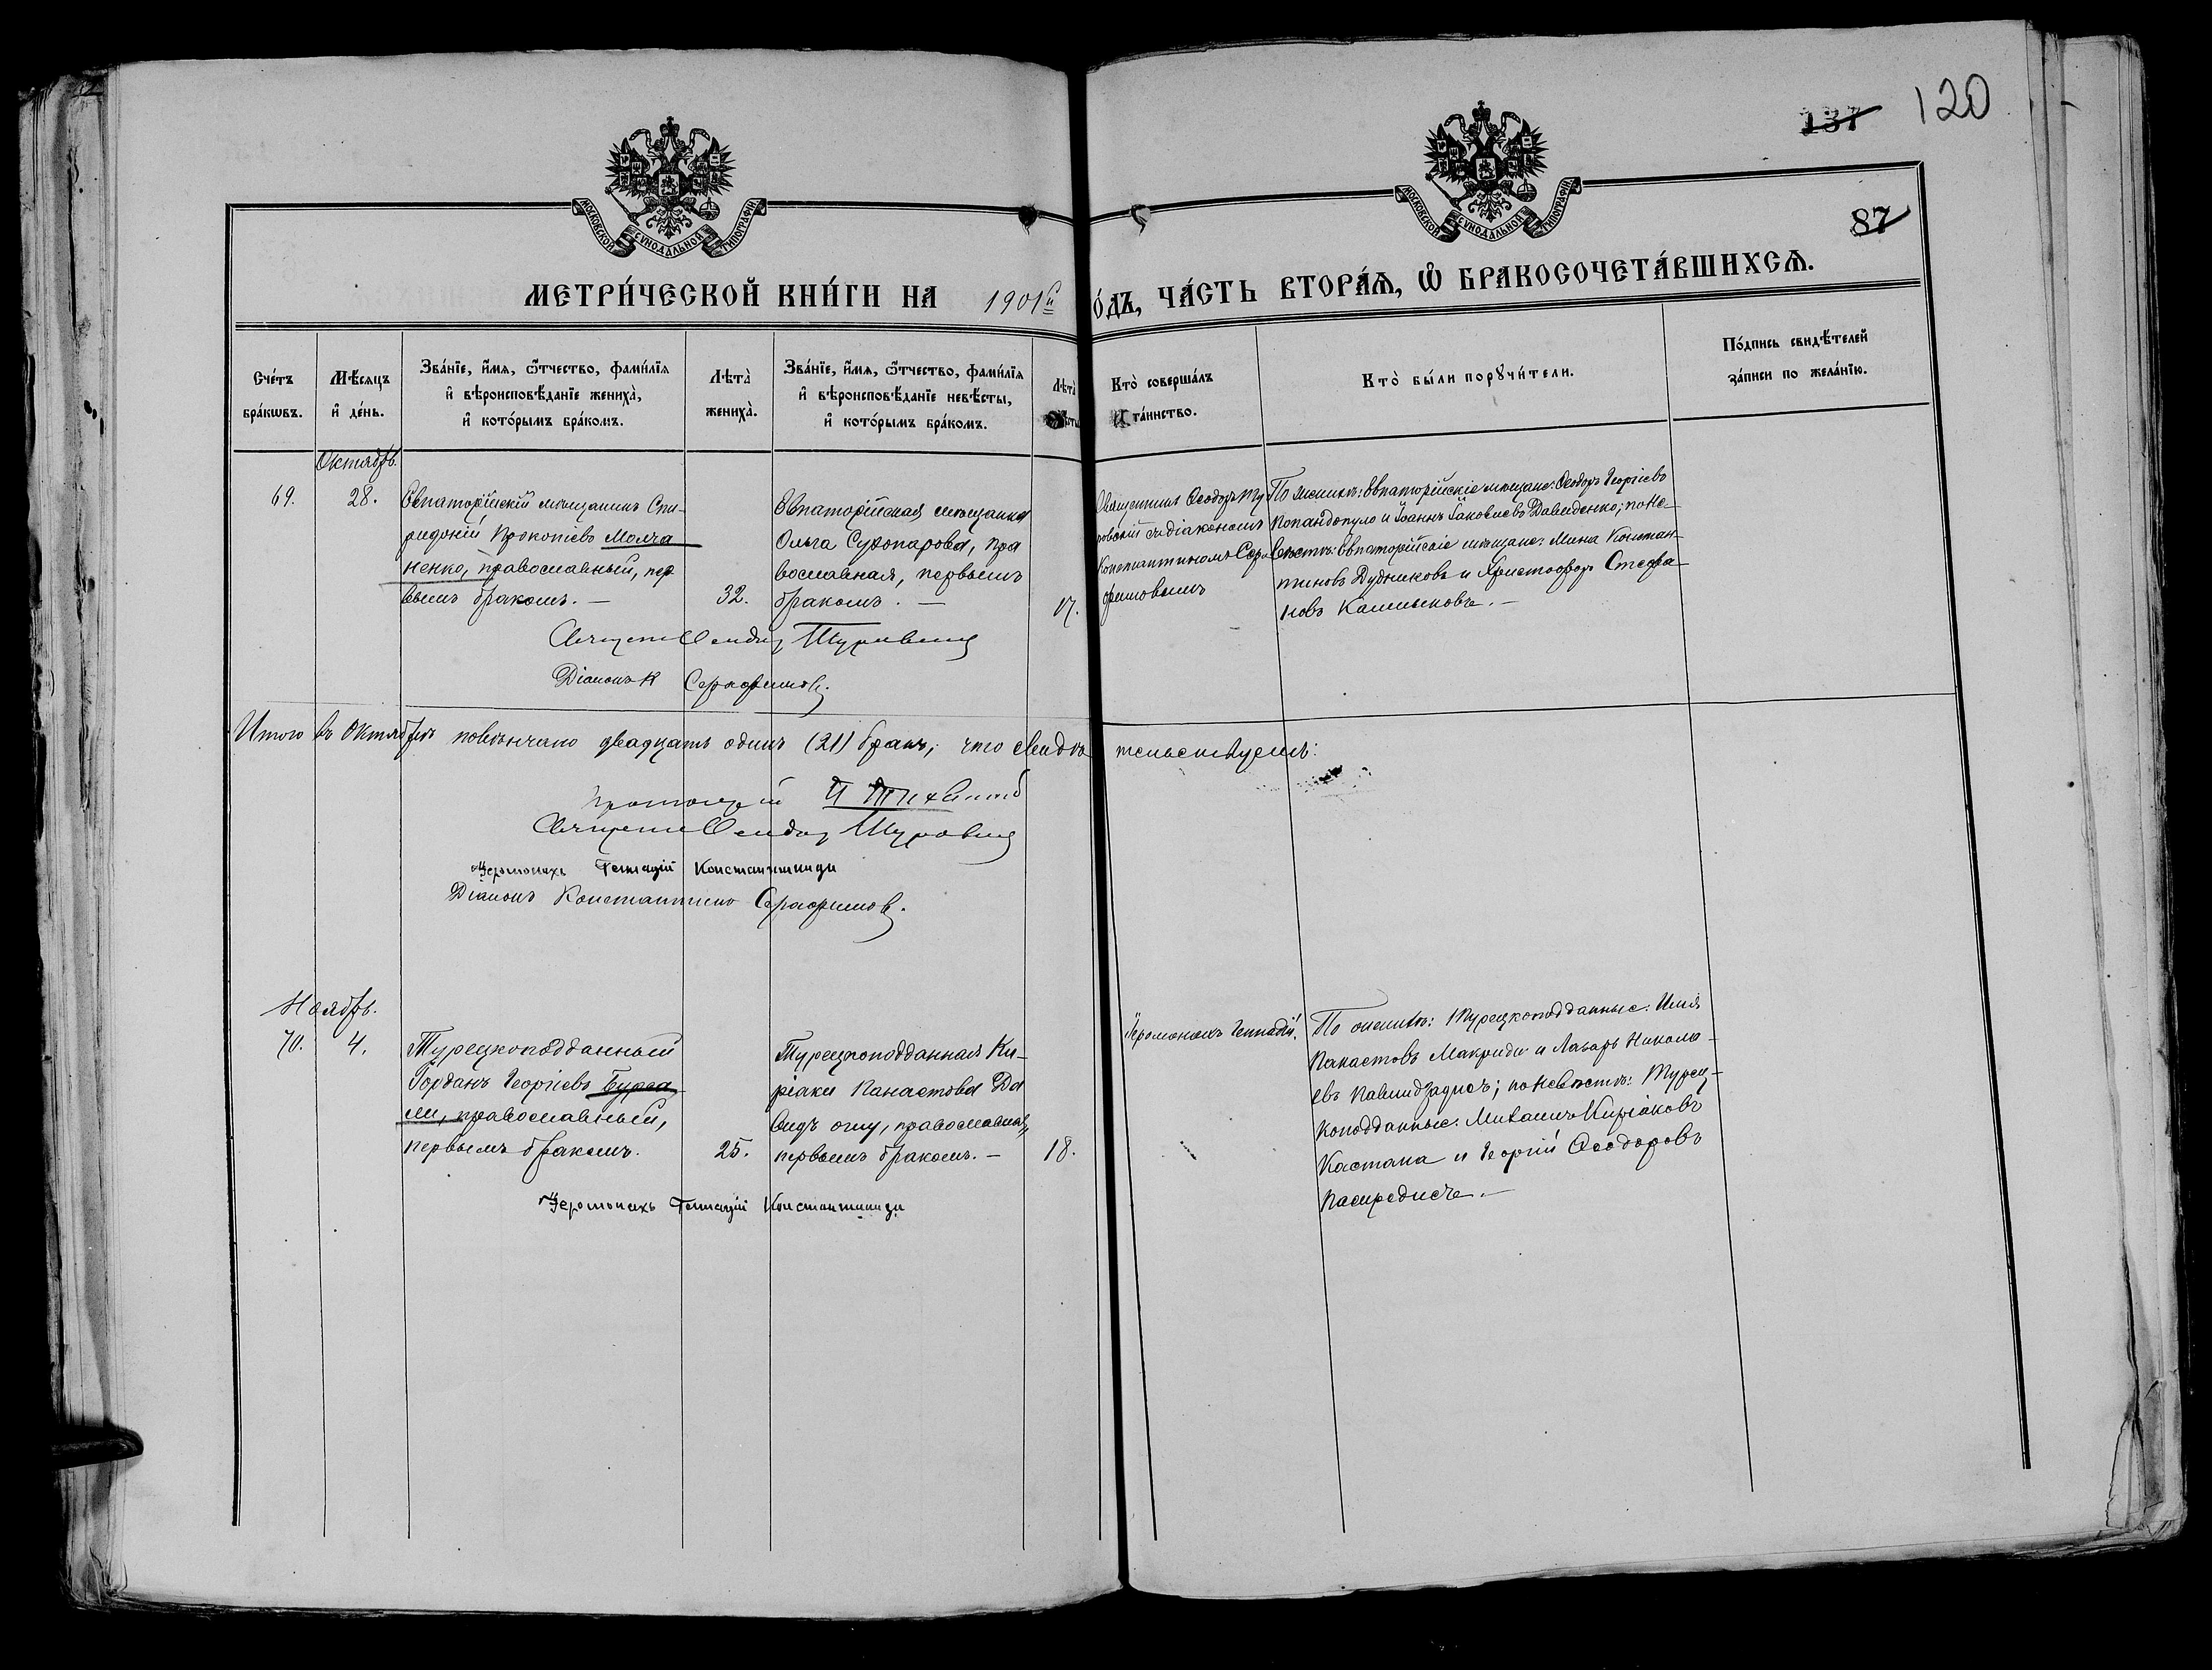 137 120
87
МОСКОВСКОЙ СѴНОДАЛЬНОЙ ТИПОГРАФІИ
МОСКОВСКОЙ СѴНОДАЛЬНОЙ ТИПОГРАФІИ
МЕТРИ́ЧЕСКОЙ КНИ́ГИ НА 1901й
О́ДЪ, ЧА́СТЬ ВТОРА́Ѧ, Ѽ БРАКОСОЧЕТА́ВШИХСѦ.
Сче́тъ
бра́кωвъ.
Мѣ́сяцъ
и҆ де́нь.
Зва́нїе, и҆́мя, ѻ҆́тчество, фами́лїя
и҆ вѣроисповѣ́данїе жениха̀,
и҆ кото́рымъ бра́комъ.
Лѣта̀
жениха̀.
Зва́нїе, и҆́мя, ѻ҆́тчество, фами́лїя
и҆ вѣроисповѣ́данїе невѣ́сты,
и҆ кото́рымъ бра́комъ.
Лѣта̀
Кто̀ соверша́лъ
та́инство.
Кто̀ бы́ли порꙋчи́тели.
По́дпись свидѣ́телей
за́писи по жела́нїю.
Октябрь.
69.
28.
Евпаторійскій мѣщанинъ Спи-
ридоній Прокопіевъ Молча
ненко, православный, пер
вымъ бракомъ. —
32.
Евпаторійская мѣщанка
Ольга Сухопарова, пра
вославная, первымъ
бракомъ. —
17.
Священникъ Ѳеодоръ Ту
ровскій съ діакономъ
Константиномъ Сера
фимовымъ
По женихѣ: Евпаторійскіе мѣщане: Ѳеодоръ Георгіевъ
Попандопуло и Іоаннъ Іаковлевъ Давиденко; по не-
вѣстѣ: Евпаторійскіе мѣщане: Мина Констан-
тиновъ Дудниковъ и Христофоръ Стефа-
новъ Калмыковъ. —
Діаконъ К Серафимовъ.
Итого въ Октябрѣ повѣнчано двадцать одинъ (21) бракъ; что свидѣ
тельствуемъ:
Протоіерей
Іеромонахъ Геннадій Константиниди
Діаконъ Константинъ Серафимовъ.
Ноябрь.
70.
4.
Турецкоподданный
Іорданъ Георгіевъ Бурса
ли, православный,
первымъ бракомъ.
25.
Турецкоподданная Ки-
ріаки Панаетова Да
видъ оглу, православная,
первымъ бракомъ. —
18.
Іеромонахъ Геннадій.
По женихѣ: Турецкоподданные: Илія
Панаетовъ Макриди и Лазарь Никола-
евъ; по невѣстѣ: Турец-
коподданные: Михаилъ Киріаковъ
Кастана и Георгій Ѳеодоровъ
Іеромонахъ Геннадій Константиниди